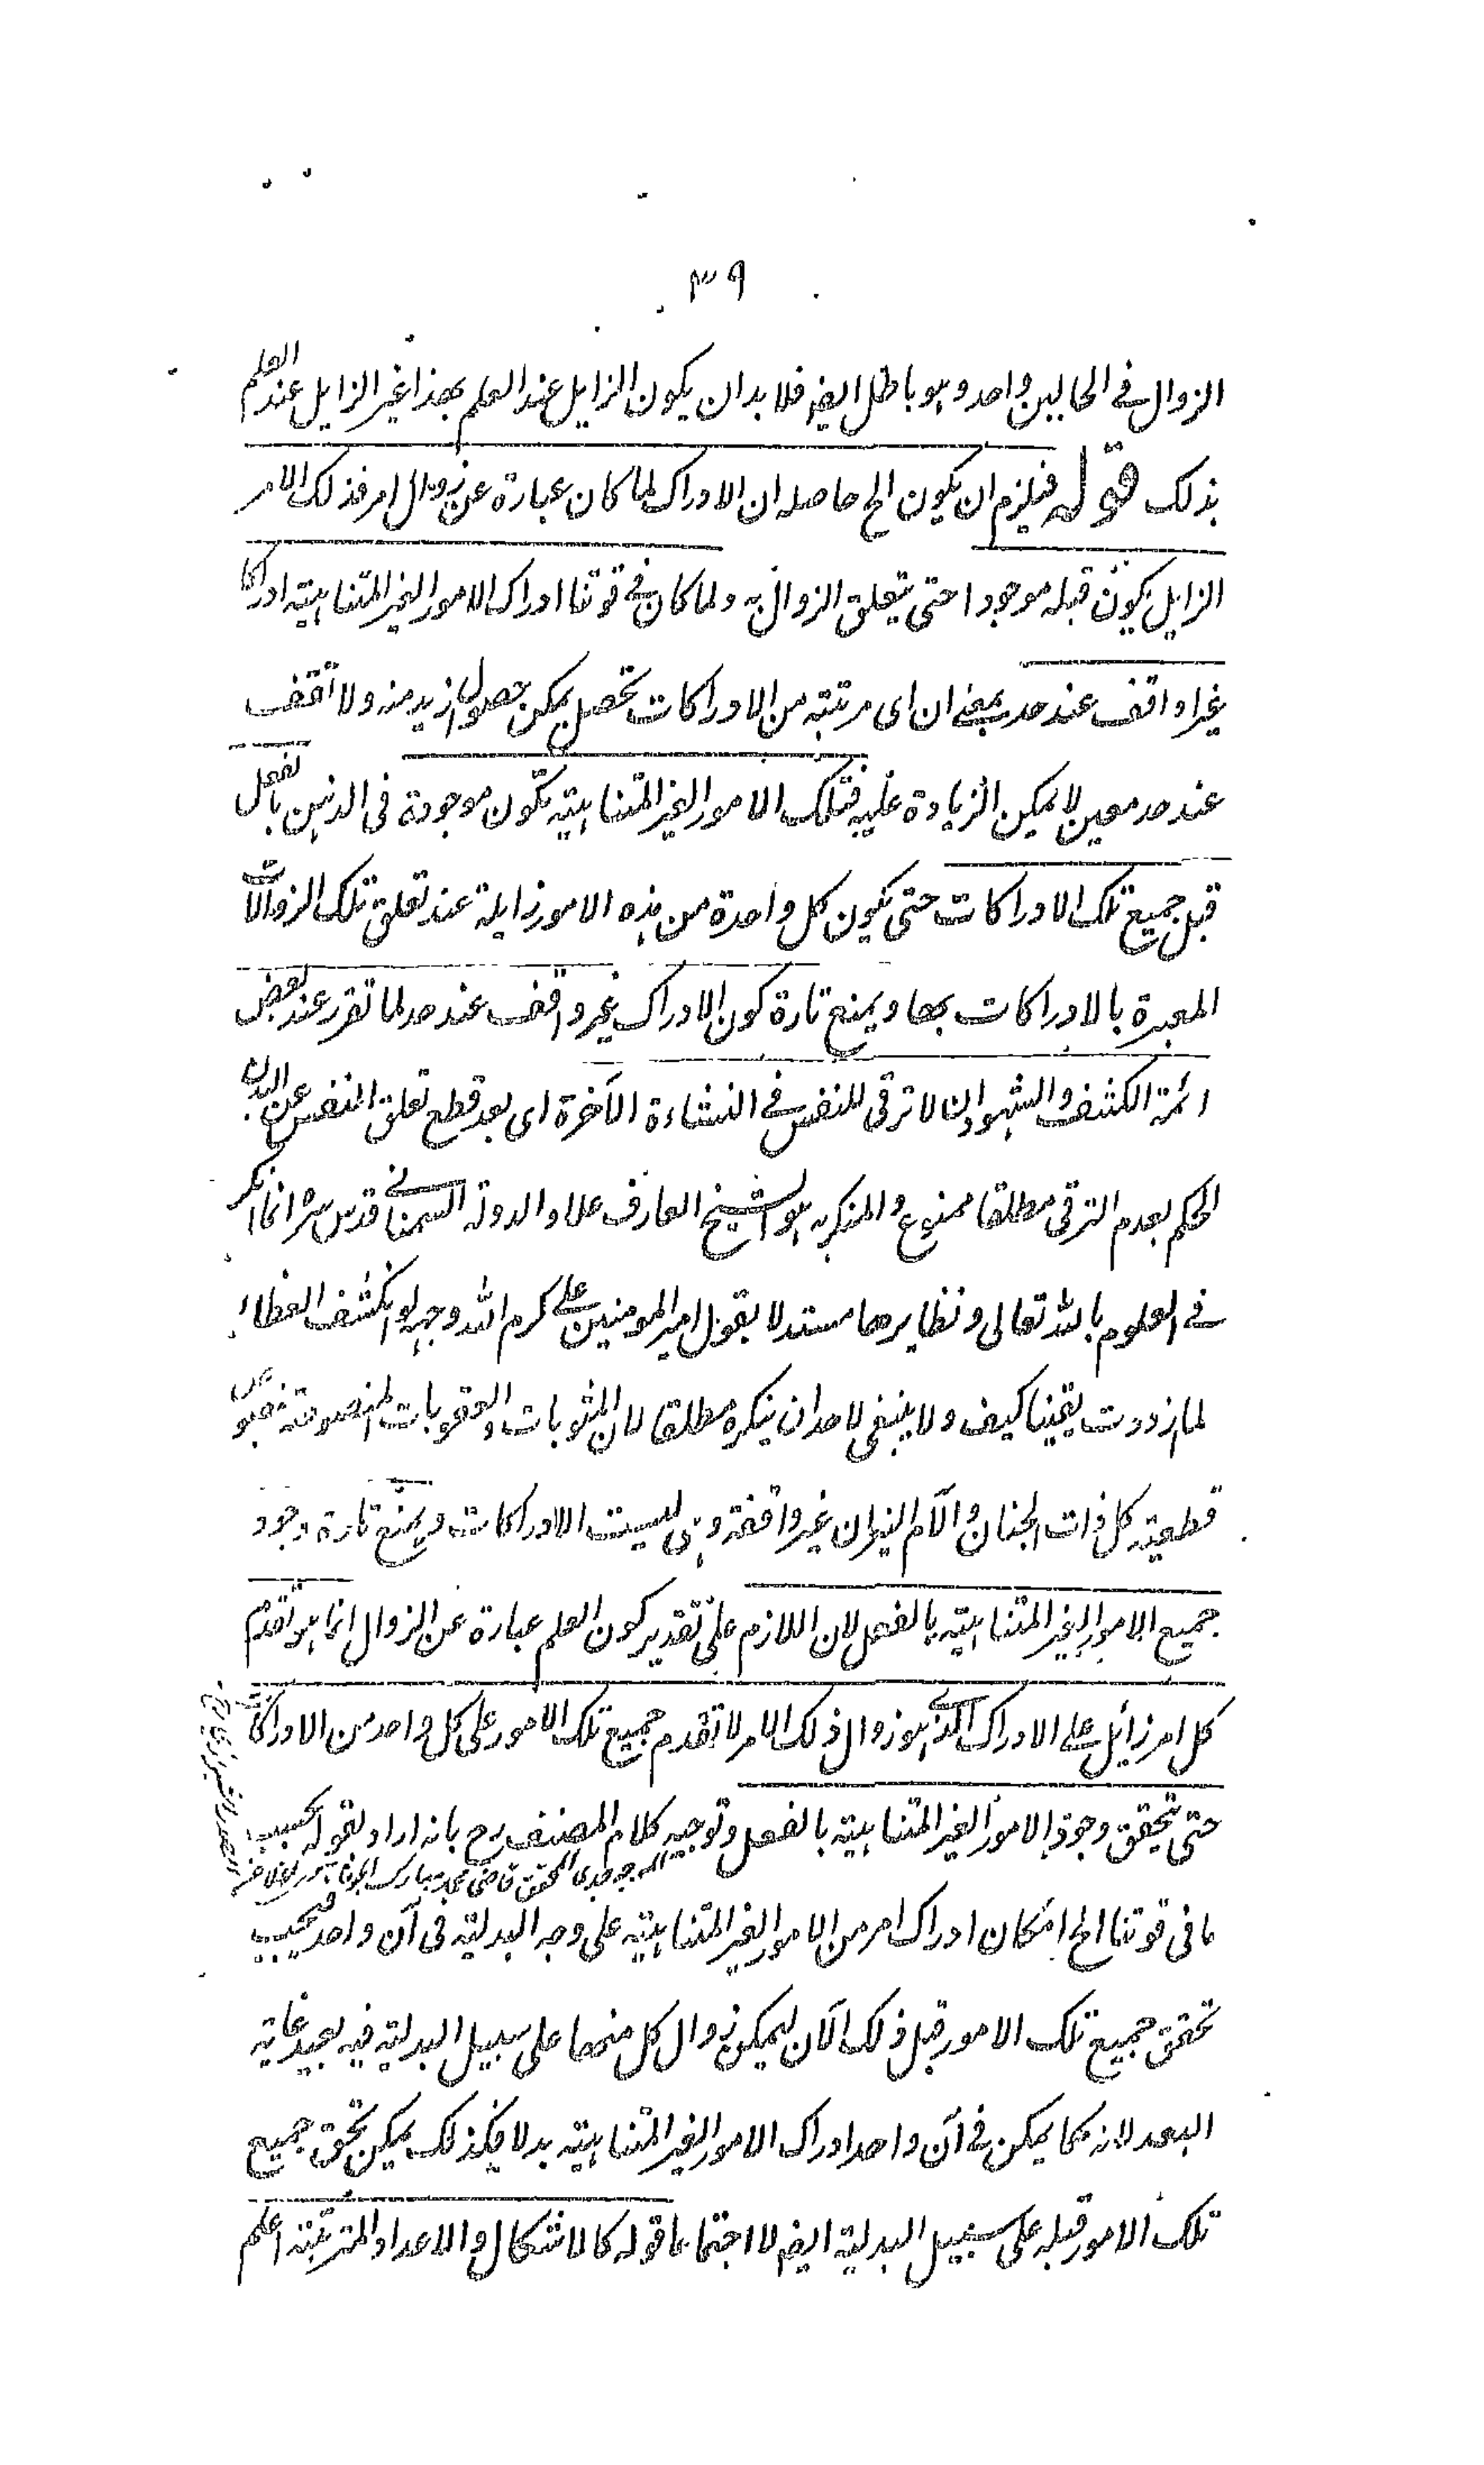 ٣٩
الزوال في الحالين واحد وهو باطل ايضا فلا بد ان يكون الزايل عند العلم بهذا غير الزايل عند العلم
بذلك قوله فيلزم ان يكون الخ حاصله ان الادراك لما كان عبارة عن زوال امر فذلك الامر
الزايل يكون قبله موجودا حتى يتعلق الزوال به ولما كان في قوتنا ادراك الامور الغير المتناهية ادراكا
غير واقف عند حد بمعنى ان اى مرتبة من الادراكات تحصل يمكن حصول ازيد منه ولا تقف
عند حد معين لا يمكن الزيادة عليه فتلك الامور الغير المتناهية تكون موجودة فى الذهن بالفعل
قبل جميع تلك الادراكات حتى يكون كل واحدة من هذه الامور زايلة عند تعلق تلك الزوالات
المعبرة بالادراكات بها ويمنع تارة كون الادراك غير واقف عند حد لما تقرر عند بعض
ائمة الكشف والشهود ان لا ترقى للنفس في النشاءة الآخرة اى بعد قطع تعلق النفس عن البدن
الحكم بعدم الترقى مطلقا ممنوع والمنكر به هو الشيخ العارف علاء الدولة السمناني قدس سره انما انكر
في العلوم بالله تعالى ونظايرهما مستدلا بقول امير المومنين على كرم الله وجهه لو انكشف الغطاء
لما ازددت يقينا كيف ولا ينبغى لاحد ان ينكره مطلقا لان المثوبات والعقوبات المنصوصة بنصوص
قطعية كلذات الجنان وآلام النيران غير واقفة وهى ليست الا ادراكات ويمنع تارة وجود
جميع الامور الغير المتناهية بالفعل لان اللازم على تقدير كون العلم عبارة عن الزوال انما هو تقدم
كل امر زائل على الادراك الذي هو زوال ذلك الامر لا تقدم جميع تلك الامور على كل واحد من الادراكات
حتى يتحقق وجود الامور الغير المتناهية بالفعل وتوجيه كلام المصنف رح بانه اراد بقوله بحسب
الموجه جدى المحقق قاضى محمد مبارك
ما فى قوتنا الخ امكان ادراك امر من الامور الغير المتناهية على وجه البدلية فى آن واحد فيجب
تحقق جميع تلك الامور قبل ذلك الآن ليمكن زوال كل منها على سبيل البدلية فيه بعيد غاية
البعد لانه كما يمكن في آن واحد ادراك الامور الغير المتناهية بدلا فكذلك يمكن تحقق جميع
تلك الامور قبله على سبيل البدلية ايضا لا اجتماعا قوله كالاشكال والاعداد المترتبة اعلم